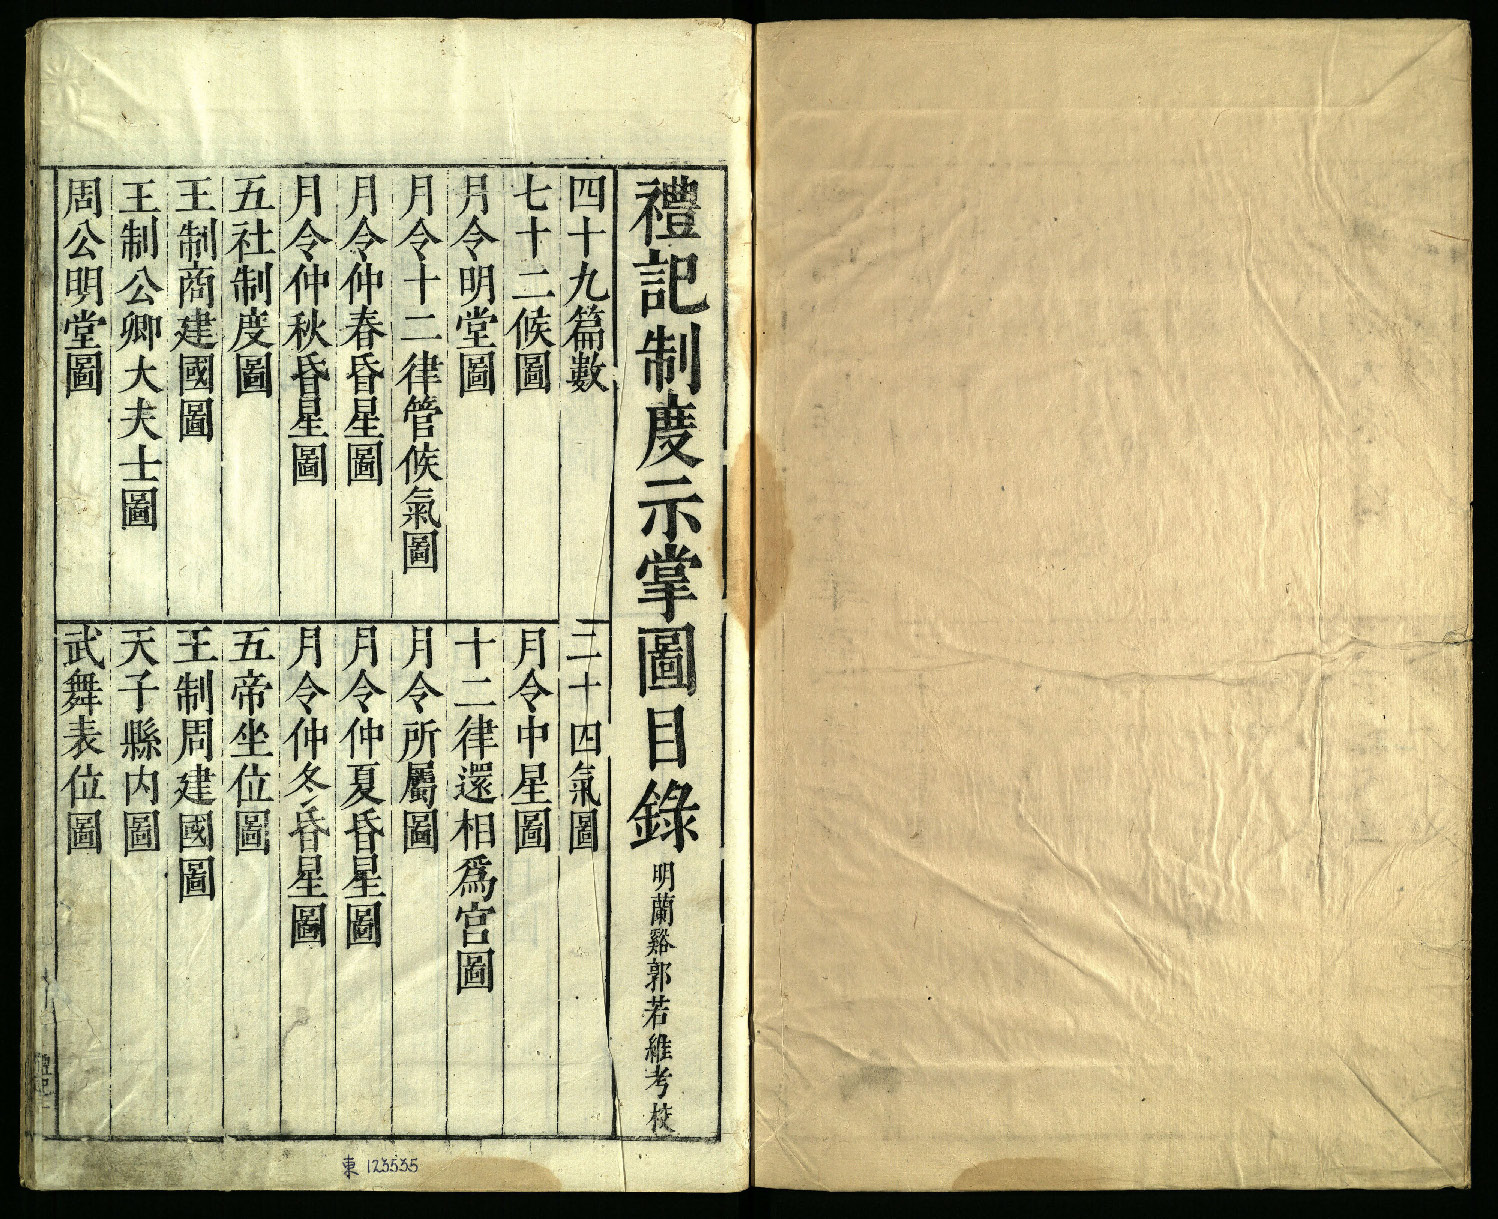 禮記制度示掌圖目錄 明蘭谿郭若維考校
四十九篇數
二十四氣圖
七十二候圖
月令中星圖
月令明堂圖
十二律還相為宮圖
月令十二律管候氣圖
月令所屬圖
月令仲春昏星圖
月令仲夏昏星圖
月令仲秋昏星圖
月令仲冬昏星圖
五社制度圖
五帝坐位圖
王制商建國圖
王制周建國圖
王制公卿大夫士圖
天子縣內圖
周公明堂圖
武舞表位圖
東 123535